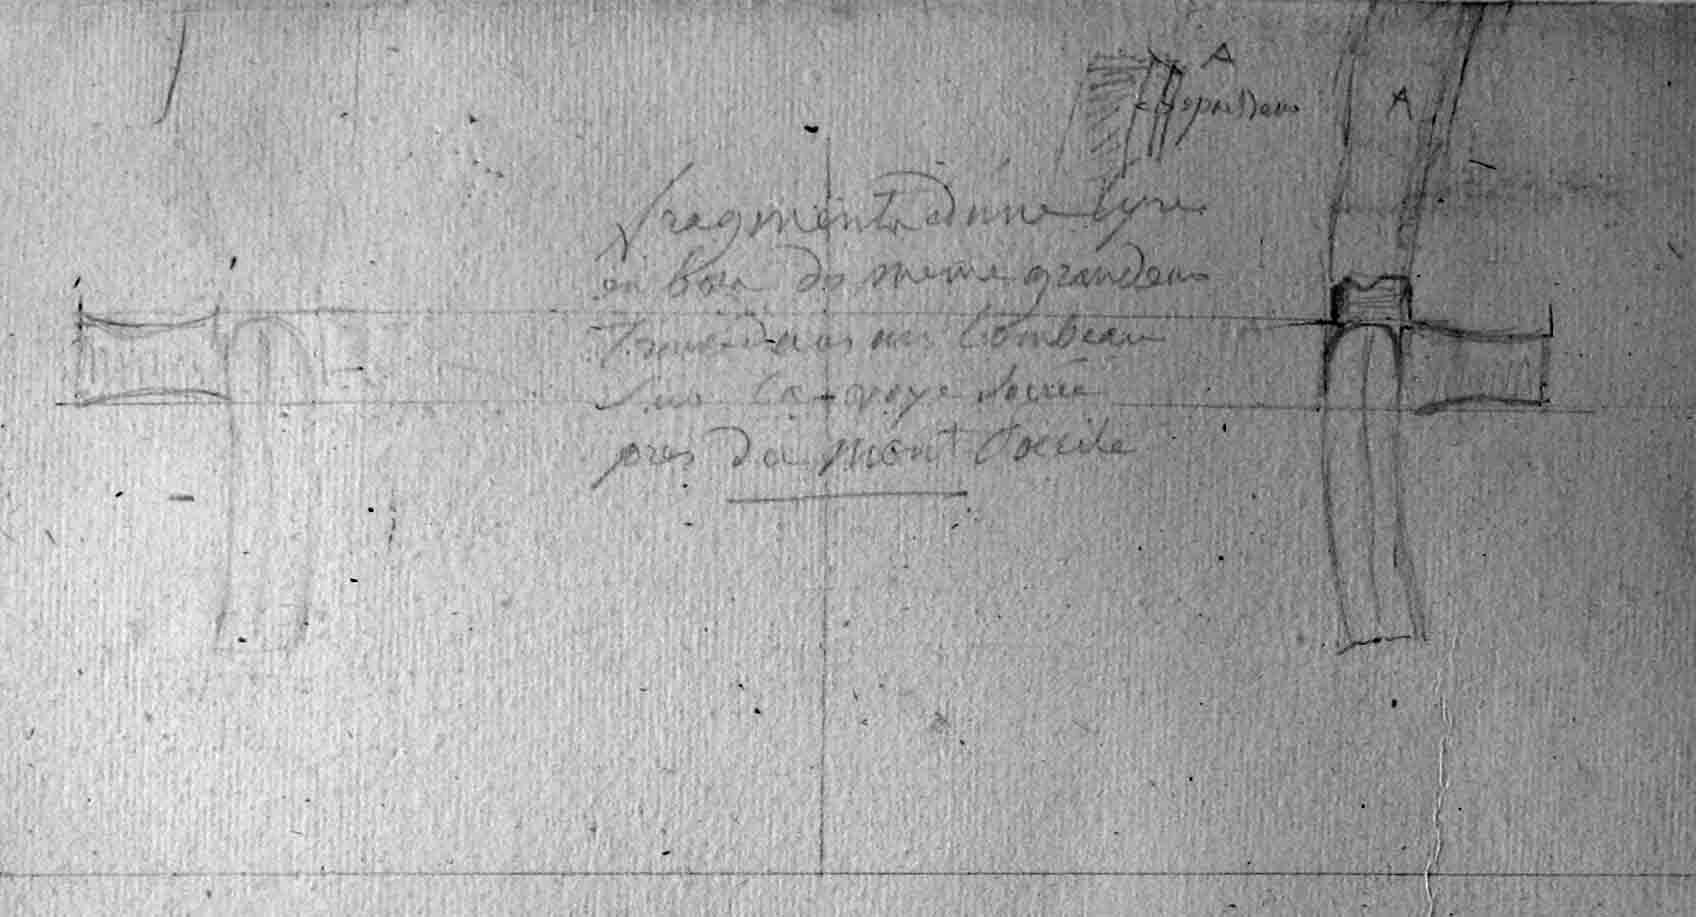 A
epaisseur
A
fragments d'une lyre
en bois de meme grandeur
trouvé dans un tombeau
sur la voye sacrée
pres du mont